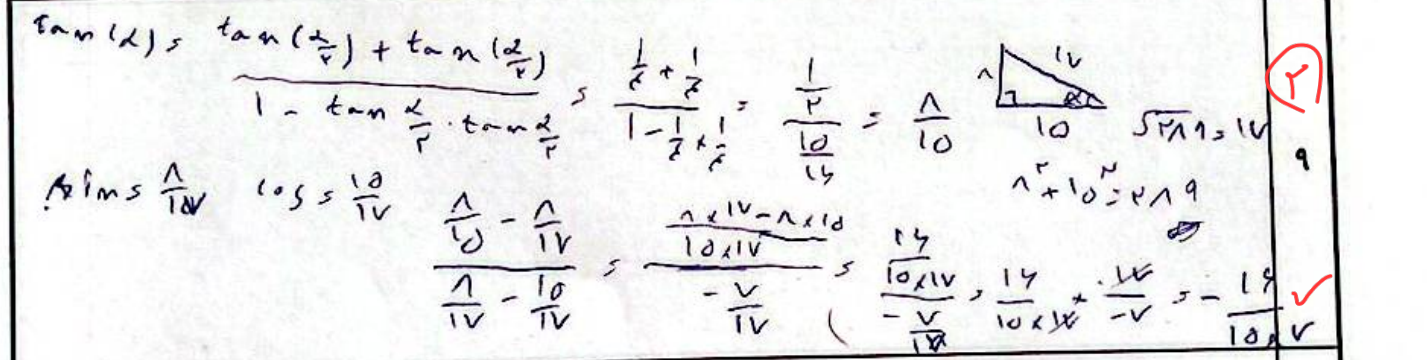 tan(α) = (tan(α/۲) + tan(α/۲)) / (۱ - tan α/۲ · tan α/۲) = (۱/۴ + ۱/۴) / (۱ - ۱/۴ × ۱/۴) = (۱/۲) / (۱۵/۱۶) = ۸/۱۵
۸ ۱۷ α ۱۵
√۲۸۹ = ۱۷
۸^۲ + ۱۵^۲ = ۲۸۹
sin = ۸/۱۷ cos = ۱۵/۱۷ (۸/۱۵ - ۸/۱۷) / (۸/۱۷ - ۱۵/۱۷) = ((۸×۱۷ - ۸×۱۵) / (۱۵×۱۷)) / (-۷/۱۷) = (۱۶/(۱۵×۱۷)) / (-۷/۱۷) = ۱۶/(۱۵×۱۷) × ۱۷/-۷ = -۱۶/(۱۵×۷) ✓
۲
۹